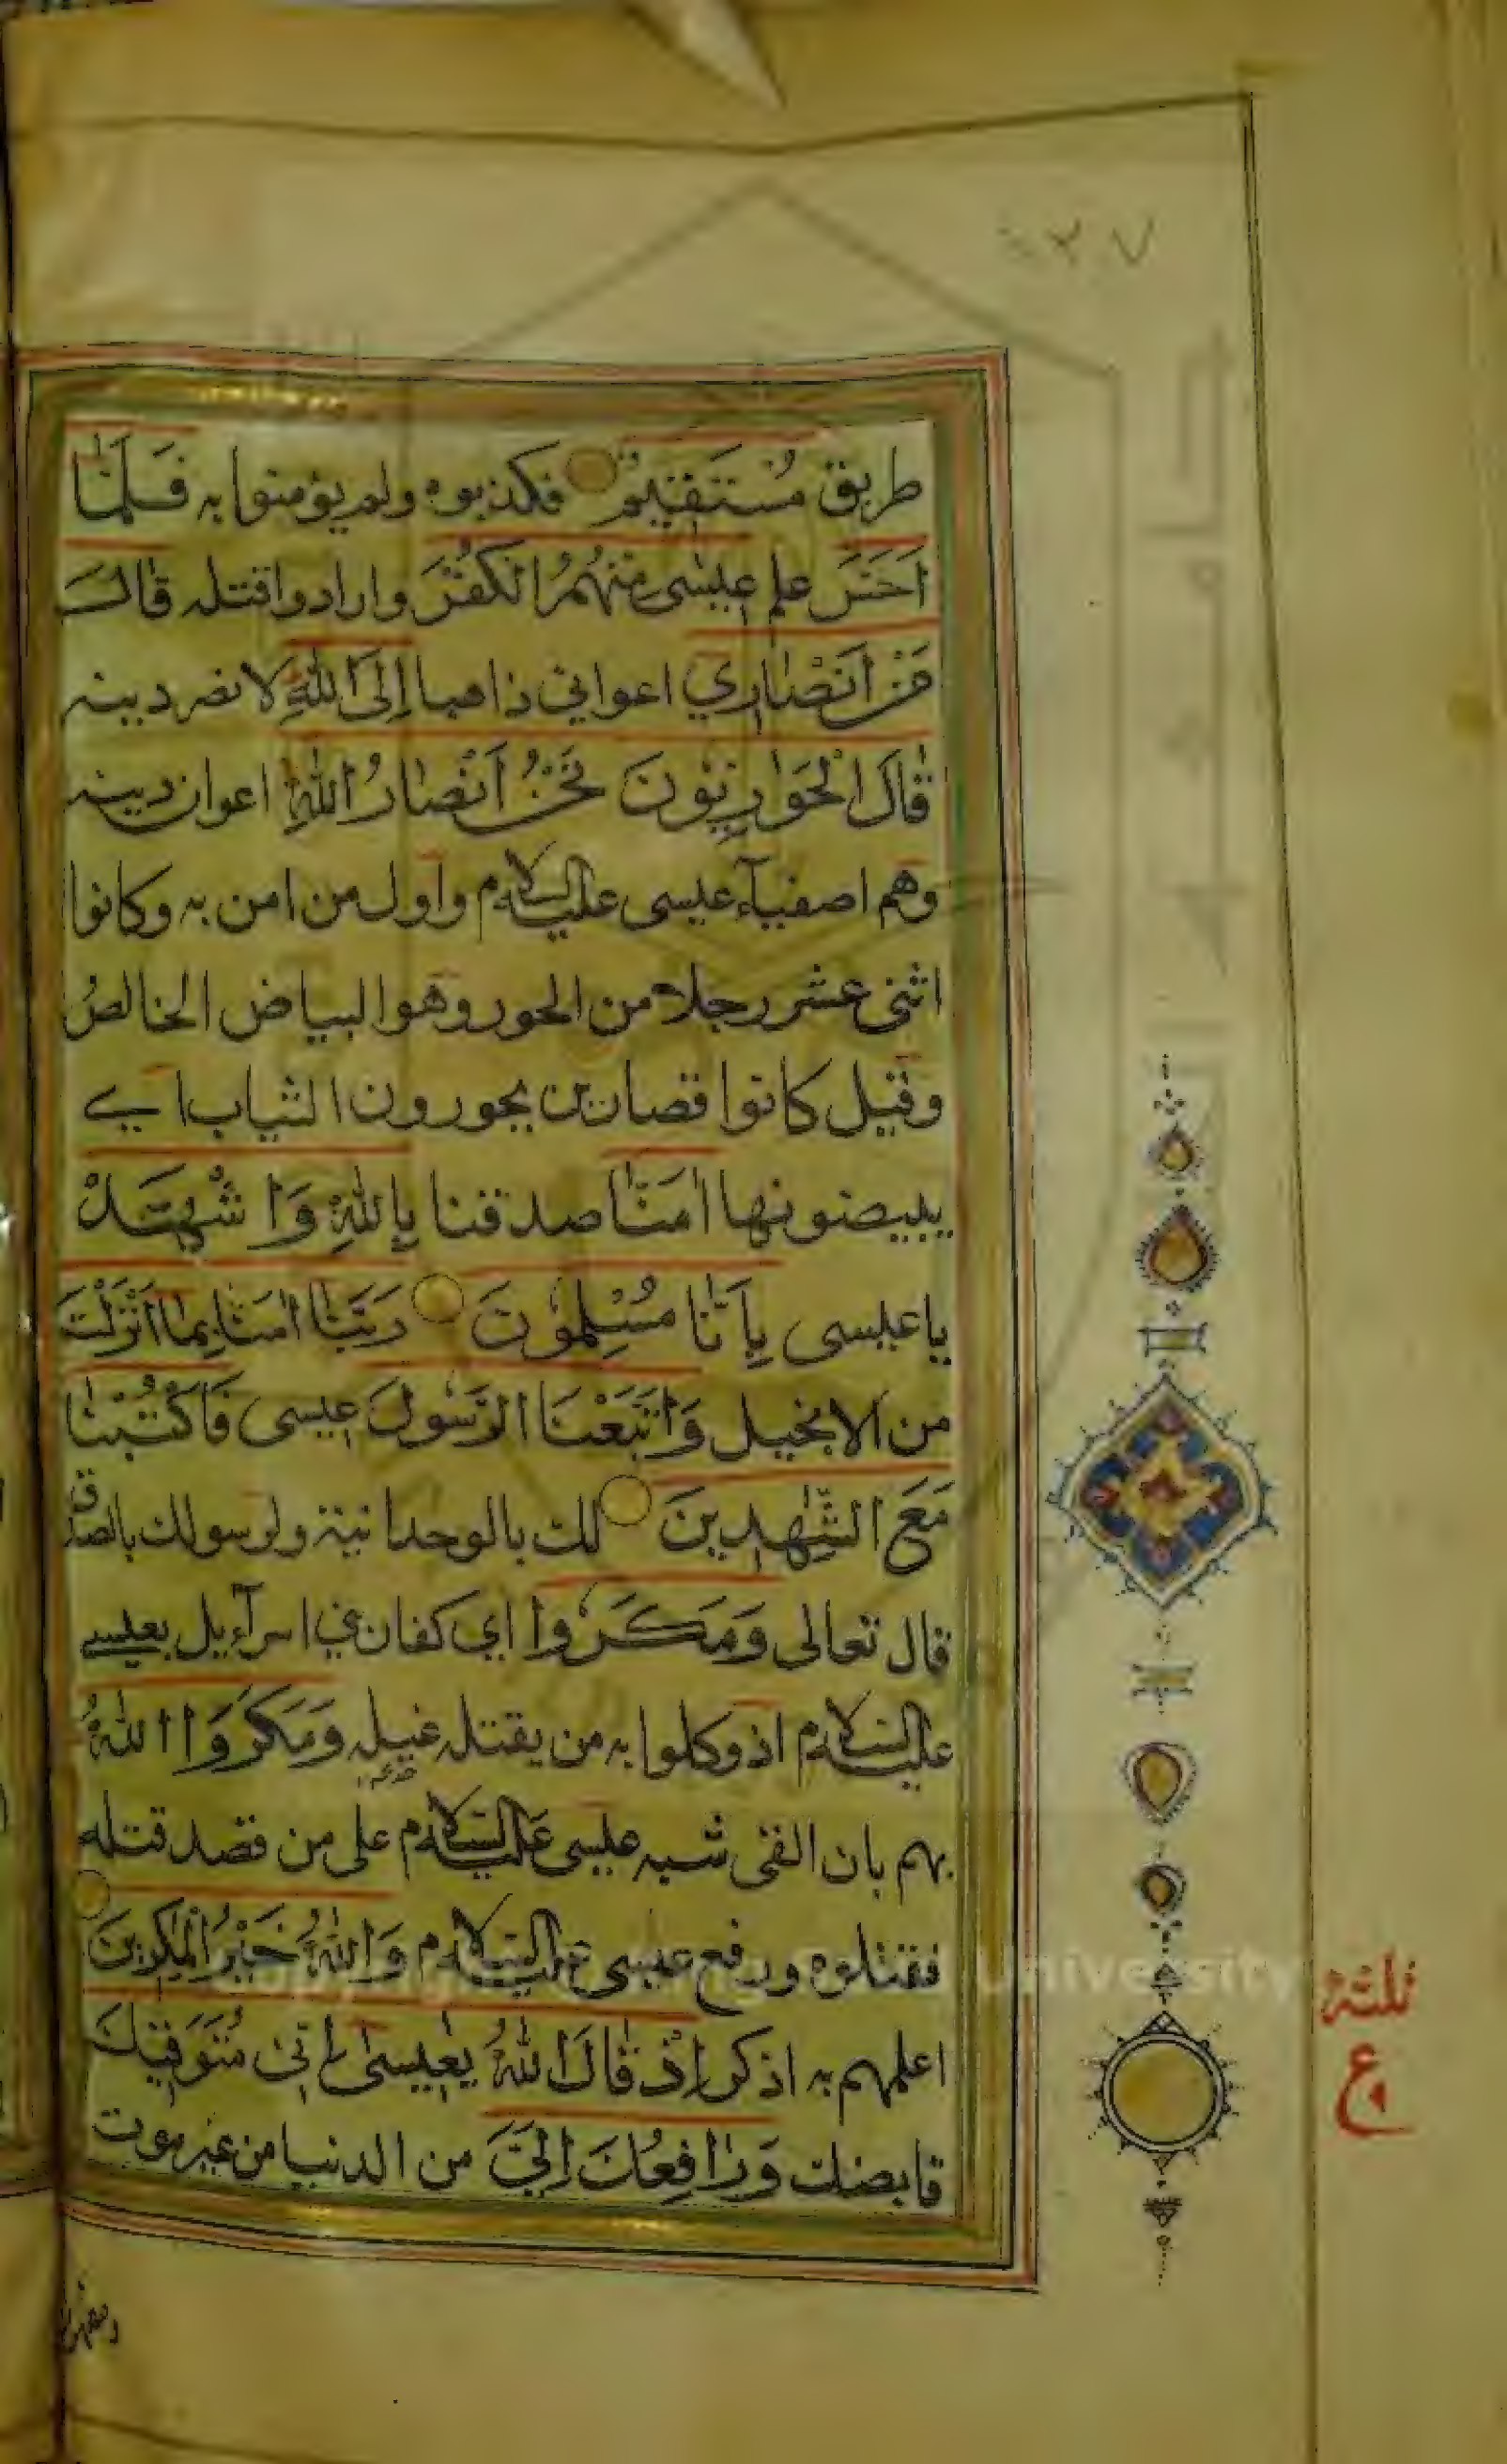 طريق مُسْتَقِيمٌ فكذبوه ولم يؤمنوا به فَلَمَّا
اَحَسَّ علم عِيسٰى مِنْهُمُ الْكُفْرَ وارادوا قتله قَالَ
مَنْ اَنْصَارِي اعواني ذاهبا اِلَى اللهِ لانصر دينه
قَالَ الْحَوَارِيُّونَ نَحْنُ اَنْصَارُ اللهِ اعوان دينه
وهم اصفيآء عيسى عليه السلام واول من امن به وكانوا
اثنى عشر رجلا من الحور وهو البياض الخالص
وقيل كانوا قصارين يحورون الثياب اي
يبيضونها اٰمَنَّا صدقنا بِاللهِ وَاشْهَدْ
يا عيسى بِاَنَّا مُسْلِمُونَ رَبَّنَا اٰمَنَّا بِمَا اَنْزَلْتَ
من الانجيل وَاتَّبَعْنَا الرَّسُولَ عيسى فَاكْتُبْنَا
مَعَ الشّٰهِدِينَ لك بالوحدانية ولرسولك بالصدق
قال تعالى وَمَكَرُوا اي كفار بني اسرآءيل بعيسى
عليه السلام اذ وكلوا به من يقتله غيلة وَمَكَرَ اللهُ
بهم بان القى شبه عيسى عليه السلام على من قصد قتله
فقتلوه ورفع عيسى عليه السلام وَاللهُ خَيْرُ الْمٰكِرِينَ
اعلمهم به اذكر اِذْ قَالَ اللهُ يٰعِيسٰى اِنِّي مُتَوَفِّيكَ
قابضك وَرَافِعُكَ اِلَيَّ من الدنيا من غير موت
ثلثة
ع
University